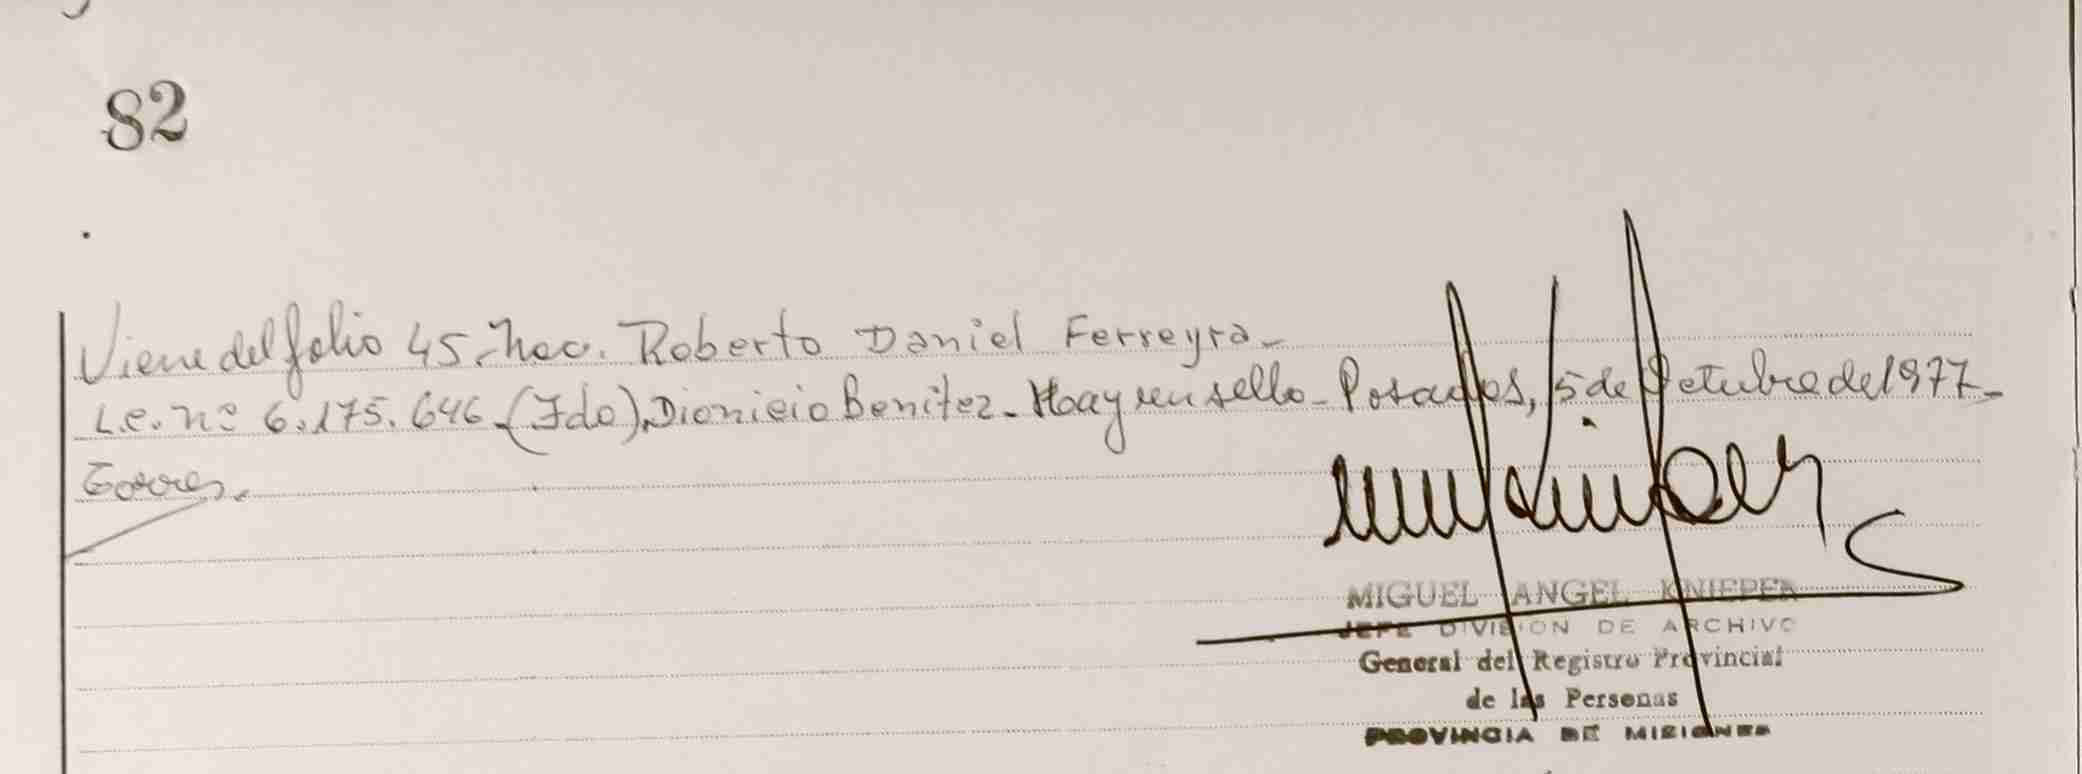 82
Viene del folio 45. Nac. Roberto Daniel Ferreyra-
L.E. nº 6.175.646-(Fdo). Dionicio Benitez- Hay un sello- Posadas, 5 de Octubre de 1977-
Torres.
MIGUEL ANGEL KNIEPER
JEFE DIVISION DE ARCHIVO
General del Registro Provincial
de las Personas
PROVINCIA DE MISIONES